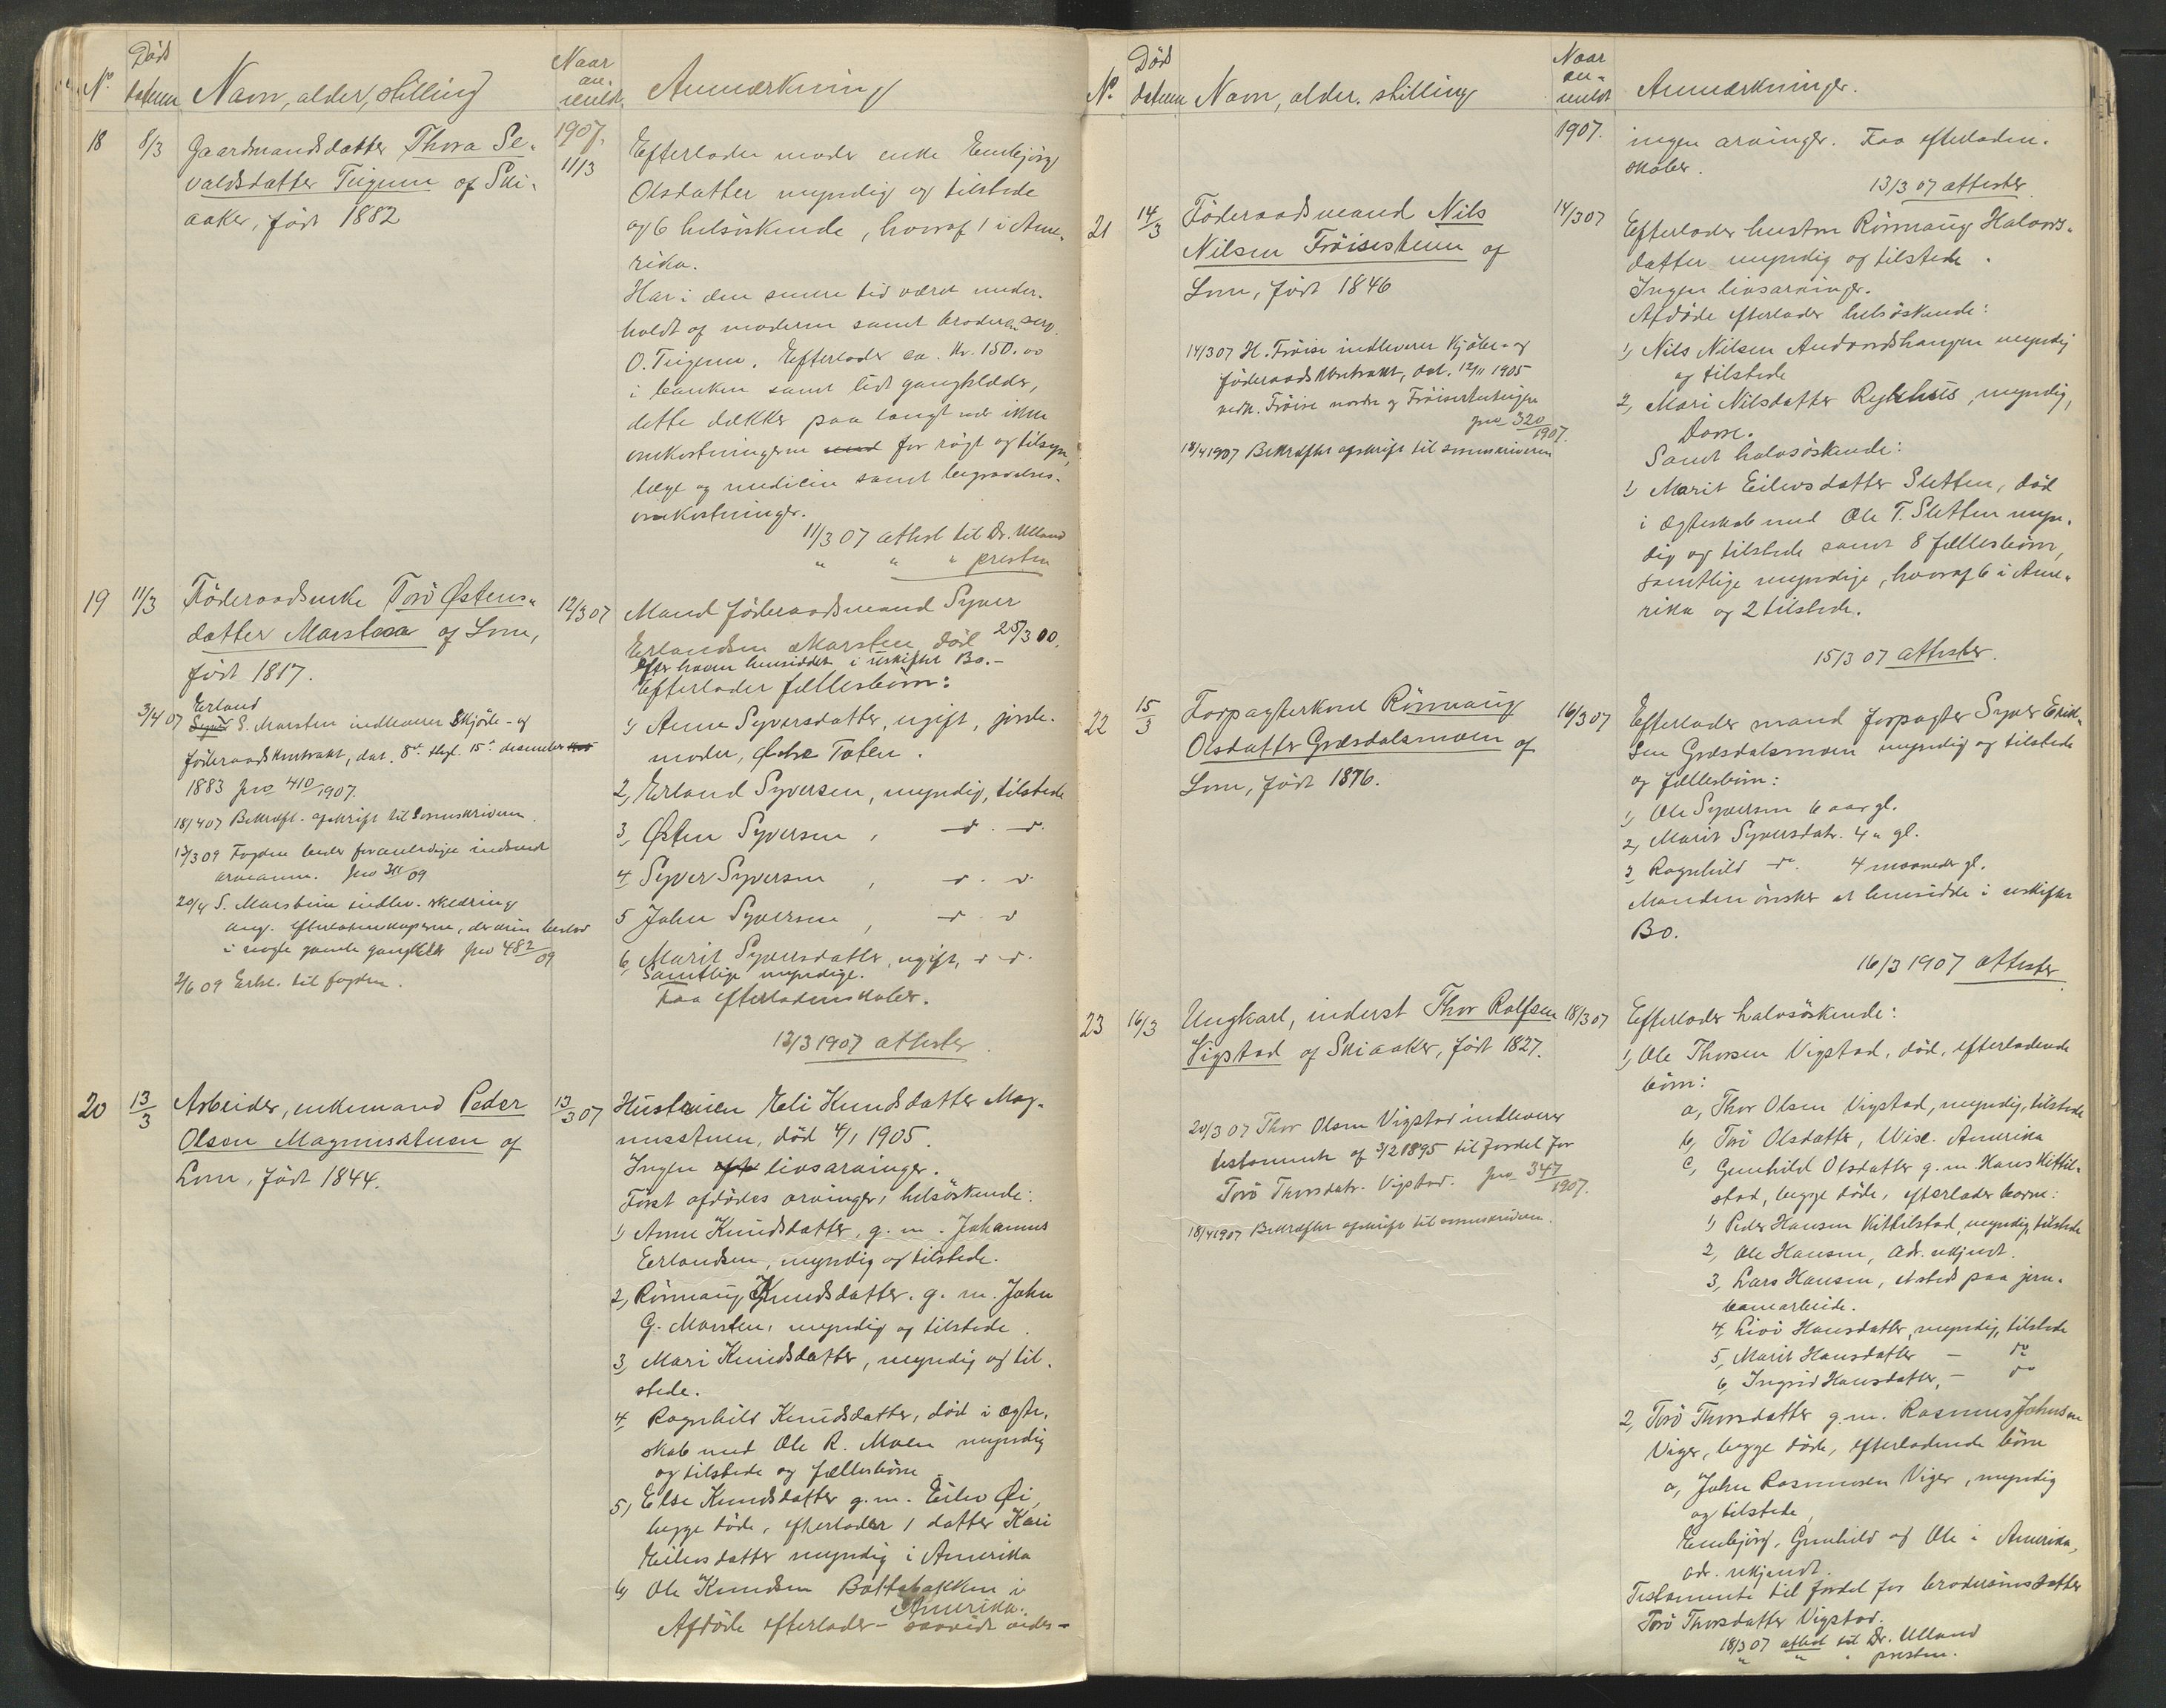 Døds
No. datum Navn, alder, stilling
Naar
an-
meldt.
Anmærkning
18 8/3 Gaardmandsdatter Thora Se-
valdsdatter Teigum af Ski-
aaker, født 1882
1907.
11/3
Efterlader moder enke Embjörg
Olsdatter myndig og tilstede
og 6 helsöskende, hvoraf 1 i Ame-
rika.
Har i den senere tid været under-
holdt af moderen samt broderen
O. Teigum. Efterlader ca. kr. 150.00
i banken samt lidt gangklæder,
dette dækker paa langt nær ikke
omkostningerne for rögt og tilsyn,
læge og medicin samt begravelses-
omkostninger.
11/3 07 attest til Dr. Ulland
" " " presten
19 11/3 Föderaadsenke Torö Østens-
datter Marsteen af Lom,
født 1817.
3/4 07 Erland
E. Marsteen indleverer Skjöte- og
föderaadskontrakt, dat. 8de thgl. 15de desember
1883 jno 410/1907.
18/4 07 Bekræft. afskrift til Sorenskriveren.
13/3 09 Fogden beder foranledige indsendt
arveanm. jno 311/09
20/4 S. Marsteen indlev. erklæring
ang. efterladenskaperne, der bestod
i nogle gamle gangklæder jno 482/09
2/6 09 Erkl. til fogden.
12/3 07
Mand föderaadsmand Syver
Erlandsen Marsteen död 25/3 00.
Efter haven hensiddet i uskiftet Bo.-
Efterlader fællesbörn:
1, Anne Syversdatter, ugift, jorde-
moder, Østre Toten.
2, Erland Syversen, myndig, tilstede
3, Østen Syversen, -"- -"-
4 Syver Syversen, -"- -"-
5 John Syversen, -"- -"-
6, Marit Syversdatter, ugift, -"- -"-
Samtlige myndige.
Faa efterladenskaber.
12/3 1907 attester.
20 13/3 Arbeider, enkemand Peder
Olsen Magnusstuen af
Lom, født 1844.
13/3 07
Hustruen Eli Knudsdatter Mag-
nusstuen, död 4/1 1905.
Ingen livsarvinger.
Först afdödes arvinger, helsöskende:
1, Anne Knudsdatter, g. m. Johannes
Erlandsen, myndig og tilstede.
2, Rönnaug Knudsdatter. g. m. John
G. Marsteen, myndig og tilstede.
3, Mari Knudsdatter, myndig og til-
stede.
4 Ragnhild Knudsdatter, död i ægte-
skab med Ole R. Moen myndig
og tilstede og fællesbörn
5, Else Knudsdatter g. m. Eilev Øi,
begge döde, efterlader 1 datter Kari
Eilevsdatter myndig i Amerika
6, Ole Knudsen Bottsbakken i
Amerika.
Afdöde efterlader - saavidt vides -
Døds
No. datum Navn, alder, stilling
Naar
an-
meldt
Anmærkninger.
1907.
ingen arvinger. Faa efterladen-
skaber.
13/3 07 attester
21 14/3 Föderaadsmand Nils
Nilsen Fröisesteen af
Lom, født 1846
14/3 07 H. Fröise indleverer Kjöbe- og
föderaadskontrakt, dat. 12/11 1905
vedk. Fröise nordre og
jno 320/1907.
18/4 1907 Bekræftet afskrift til sorenskriveren
14/3 07
Efterlader hustru Rönnaug Halvors-
datter myndig og tilstede.
Ingen livsarvinger.
Afdöde efterlader helsöskende:
1, Nils Nilsen Andvordshaugen myndig
og tilstede
2, Mari Nilsdatter Ryhhus, myndig,
Dovre.
Samt halvsöskende:
1, Marit Eilevsdatter Sletten, död
i ægteskab med Ole T. Sletten myn-
dig og tilstede samt 8 fællesbörn,
samtlige myndige, hvoraf 6 i Ame-
rika og 2 tilstede.
15/3 07 attester.
22 15/3 Forpagterkone Rönnaug
Olsdatter Græsdalsmoen af
Lom, født 1876.
16/3 07
Efterlader mand forpagter Syver Erik-
sen Græsdalsmoen myndig og tilstede
og fællesbörn:
1, Ole Syversen 6 aar gl.
2, Marit Syversdatr. 4 " gl.
3 Ragnhild do. 4 maaneder gl.
Manden önsker at hensidde i uskiftet
Bo.
16/3 1907 attester
23 16/3 Ungkarl, inderst Thor Rolfsen
Vigstad af Skiaaker, født 1827.
20/3 07 Thor Olsen Vigstad indleverer
testamente af 3/2 1895 til fordel for
Torö Thorsdatr. Vigstad. jno 347/1907.
18/4 1907 Bekræftet afskrift til sorenskriveren.
18/3 07
Efterlader halvsöskende:
1, Ole Thorsen Vigstad, död, efterladende
börn:
a, Thor Olsen Vigstad, myndig, tilstede
b, Torö Olsdatter, Wisc. Amerika
c, Gunhild Olsdatter g. m. Hans Kittil-
stad, begge döde, efterlader börn:
1, Peder Hansen Kittilstad, myndig, tilstede
2, Ole Hansen, adr. ukjendt.
3, Lars Hansen, etsteds paa jern-
banearbeide.
4, Livö Hansdatter, myndig, tilstede
5, Marit Hansdatter - do
6, Ingrid Hansdatter, - do
2, Torö Thorsdatter g. m. Rasmus Johnsen
Viger, begge döde, efterladende börn
a, John Rasmussen Viger, myndig
og tilstede,
Embjörg, Gunhild og Ole i Amerika,
adr. ukjendt.
Testamente til fordel for brodersönsdatter
Torö Thorsdatter Vigstad.
18/3 07 attest til Dr. Ulland
" " " presten.